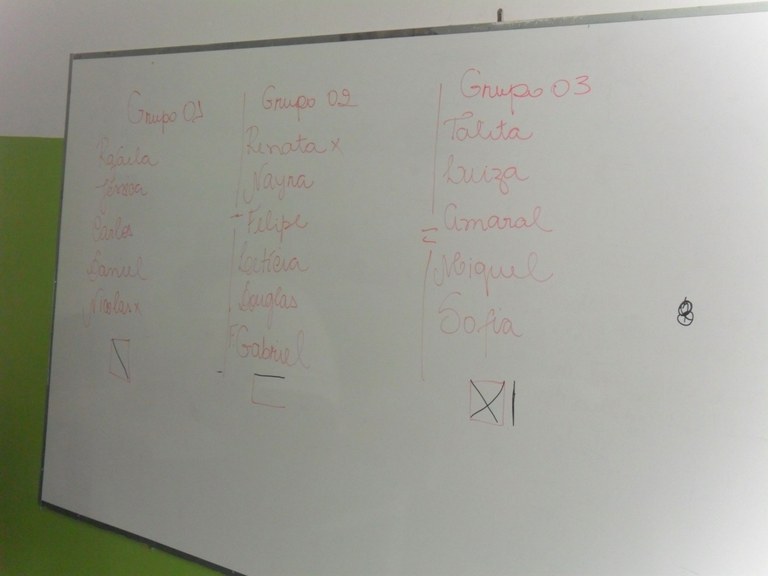 Grupo 01
Rafaela
Carlos
Daniel
Nicolas x
Grupo 02
Renata x
Nayra
Felipe
Letícia
Douglas
Gabriel
Grupo 03
Talita
Luiza
Amaral
Miguel
Sofia